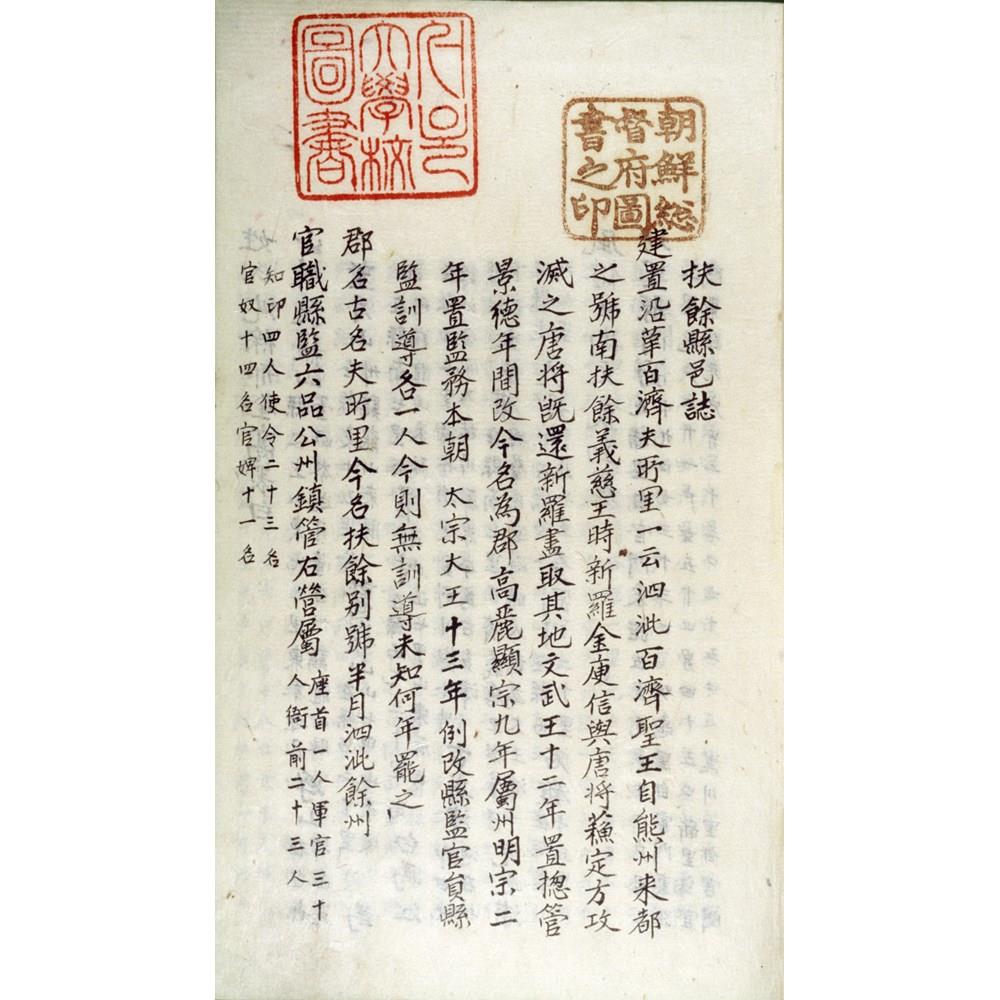 朝鮮総
督府圖
書之印
大學校
圖書
扶餘縣邑誌
建置沿革百濟夫所里一云泗沘百濟聖王自熊州来都
之號南扶餘義慈王時新羅金庾信與唐將蘓定方攻
滅之唐将旣還新羅盡取其地文武王十二年置揔管
景德年間改今名為郡高麗顯宗九年屬州明宗二
年置監務本朝 太宗大王十三年例改縣監官負縣
監訓導各一人今則無訓導未知何年罷之
郡名古名夫所里今名扶餘別號半月泗沘餘州
官職縣監六品公州鎮管右營屬 座首一人軍官三十
人衙前二十三人
知印四人使令二十三名
官奴十四名官婢十一名